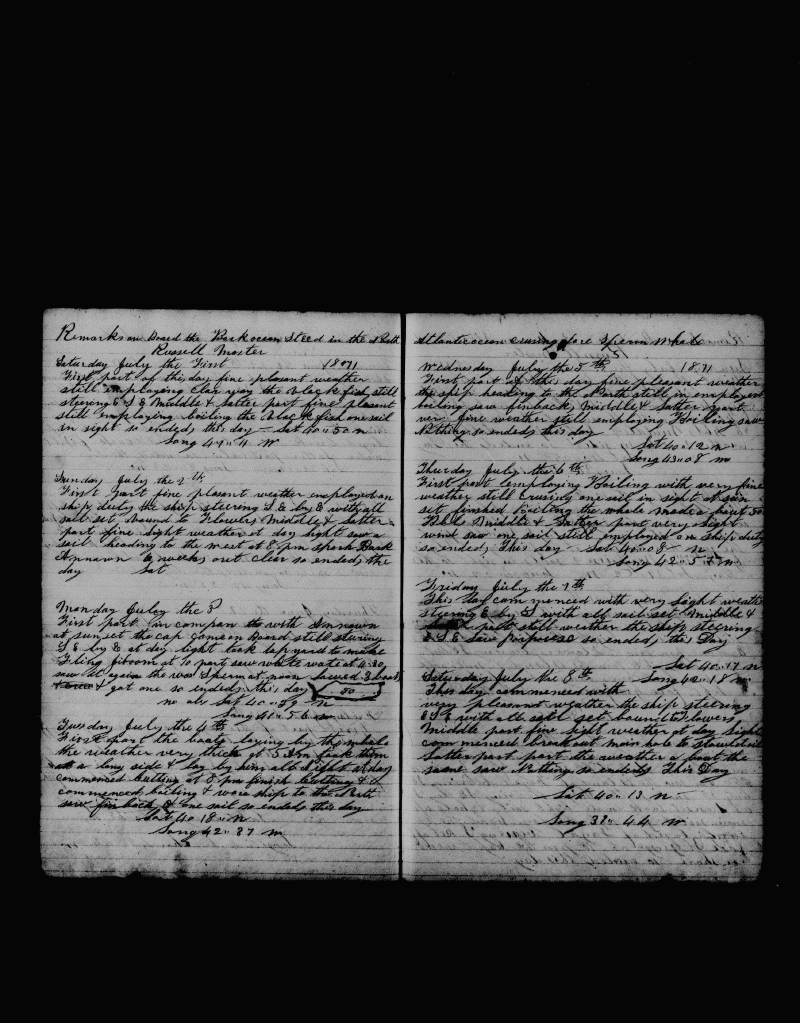 Remarks on Board the Bark ocean Steed in the North
Russell Master
Saturday July the First 1871
First part of this day fine pleasant weather
still employing clear way the Black fish still
steering E S E Middle & Latter part fine pleasant
still employing boiling the Black fish one sail
in sight so ended this day Lat 40 " 50 N
Long 47 " 11 W
Sunday July the 2th
First part fine pleasant weather employed on
ship duty the ship steering S E by E with all
sail set bound to Flowers Middle & Latter
part fine light weather at day light saw a
sail heading to the west at 8 pm spoke Bark
6 weeks out clear so ended the
day Lat
Monday July the 3
First part in compan with
at sunset the cap came on Board still stering
S E by E at day light took
at 10 part saw white water at 4:30
saw it again the was Sperm at noon lowed 3 boats
& got one so ended this day 50
no obs Lat 40 " 59 N
Long 41 " 56 W
Tuesday July the 4th
First part the boats laying by the whale
the weather very thick at 5 Am took them
at a long side & lay by him all night at day
commenced cutting at 8 pm finish Cutting &
commenced boiling & wore ship to the
saw fin back & one sail so ended this day
Lat 40 18 " N
Long 42 " 37 W
Atlantic ocean crusing fore Sperm Whale
Wednesday July the 5th 1871
First part of this day fine pleasant weather
the ship heading to the North still in employed
boiling saw finback Middle & Latter part
very fine weather still employing Boiling saw
Nothing so ended this day
Lat 40 " 12 N
Long 43 " 08 W
Thurday July the 6th
First part employing Boiling with very fine
weather still crusing one sail in sight Again
set finished boiling the whale made a bout 50
Bbls Middle & Latter part very light
wind saw one sail still employed on ship duty
so ended This day Lat 40 " 08 N
Long 42 " 57 W
Friday July the 7th
This day commenced with very light weather
steering E by S with all sail set Middle &
part still weather the ship steering
E S E saw porposes so ended this Day
Lat 40 " 17 N
Long 42 " 18 W
Saturday July the 8th
This day commenced with
very pleasant weather the ship steering
E S E with all sail set bound to Flowers
Middle part fine light weather at day light
commenced breakout main hole to
Latter part part the weather a bout the
same saw Nothing so ended This Day
Lat 40 " 13 N
Long 38 " 44 W